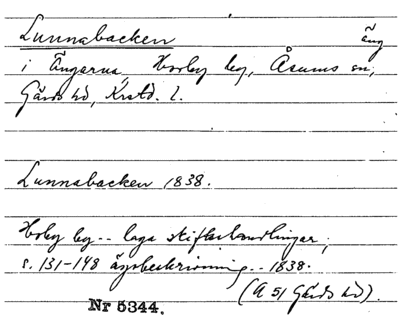 Lunnabacken äng
i Ängarna, Horby by, Åsums sn,
Gärds hd, Krstd. l.
Lunnabacken 1838.
Horby by -- laga skifteshandlingar,
s. 131-148 ägobeskrivning -- 1838.
(A 51 Gärds hd).
Nr 5344.